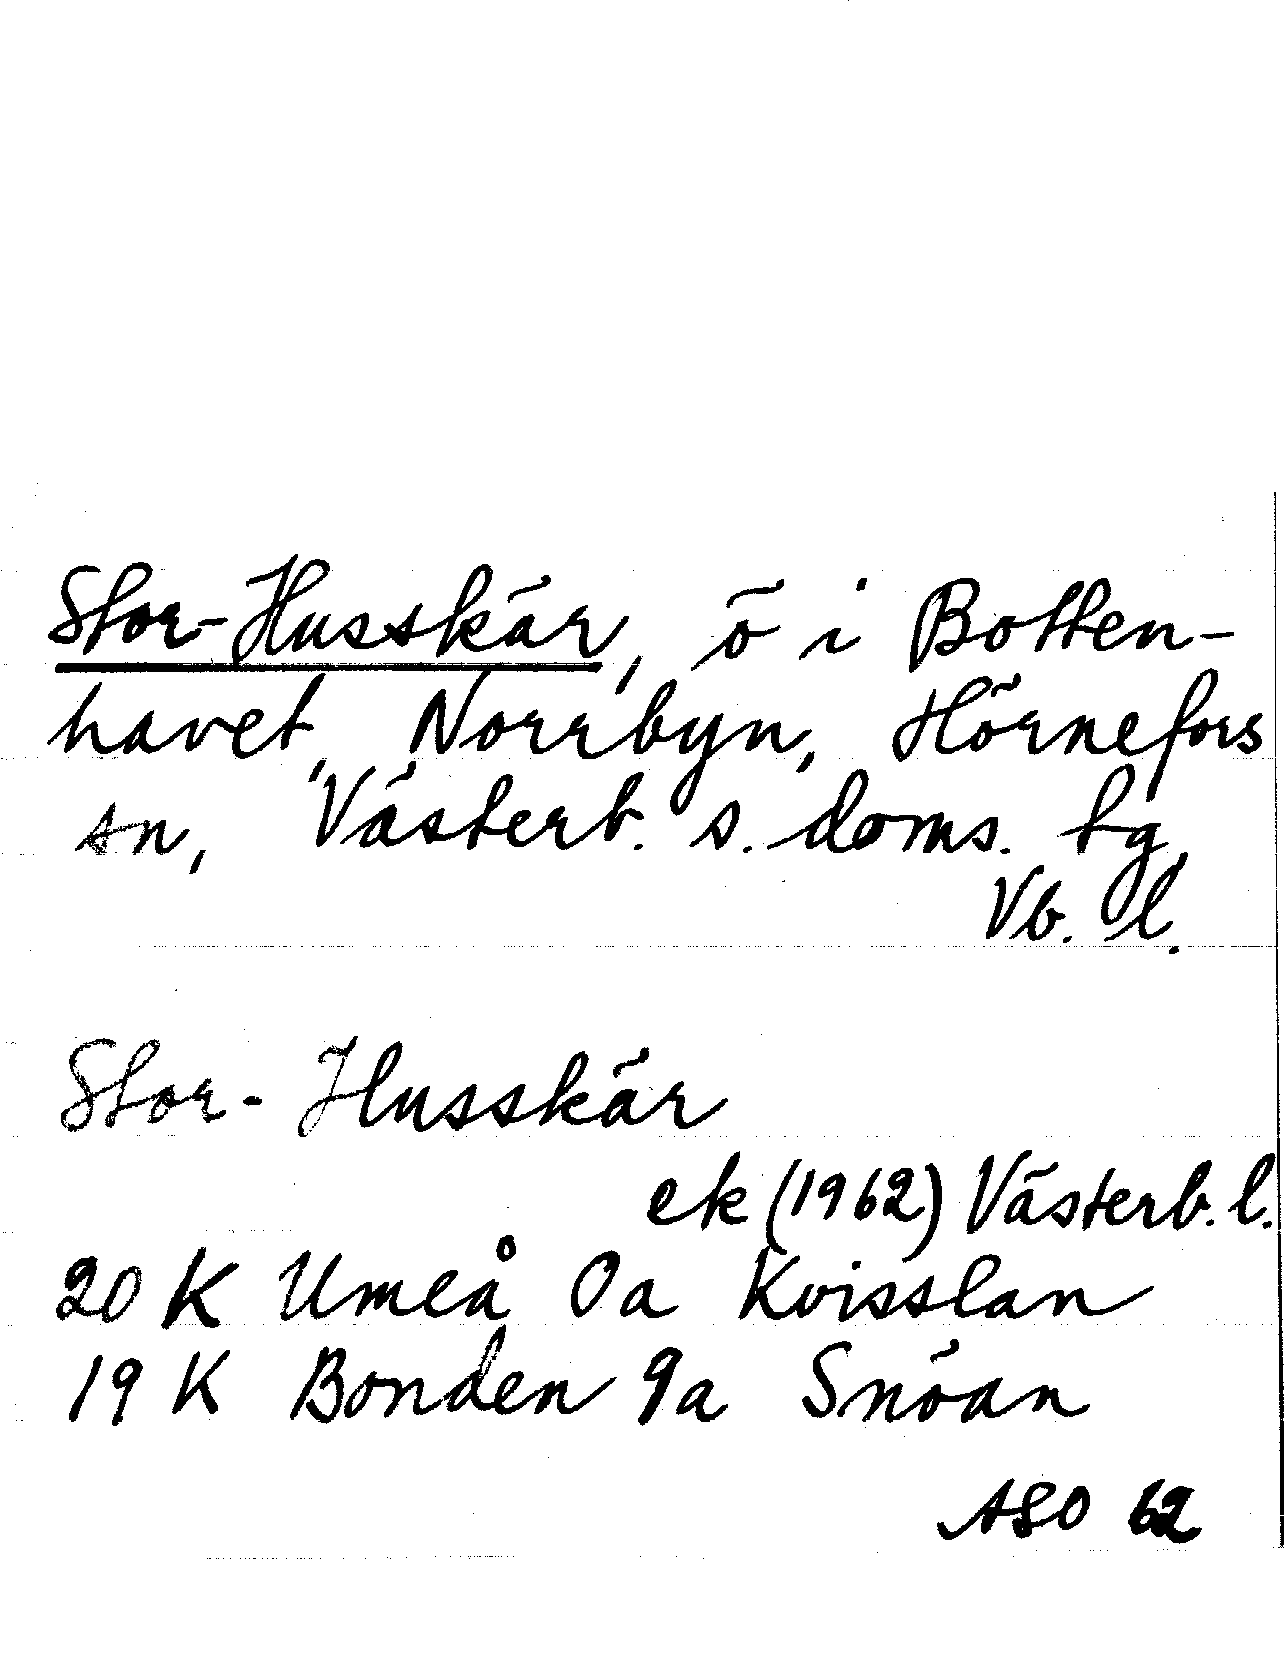 Stor-Husskär, ö i Botten-
havet, Norrbyn, Hörnefors
sn, Västerb. s. doms. tg,
Vb. l.
Stor-Husskär
ek (1962) Västerb. l.
20 K Umeå 0a Kvisslan
19 K Bonden 9a Snöan
ASO 62